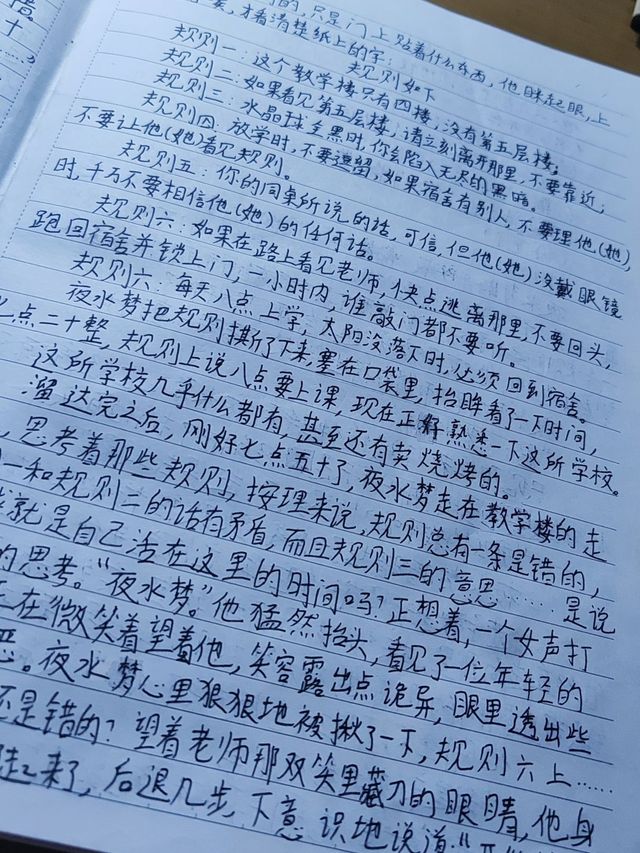 的,只是门上贴着什么东西,他眯起眼,上
才看清楚纸上的字:
规则如下
规则一:这个教学楼只有四楼,没有第五层楼;
规则二:如果看见第五层楼,请立刻离开那里,不要靠近;
规则三:水晶球全黑时,你会陷入无尽的黑暗。
规则四:放学时,不要逗留,如果宿舍有别人,不要理他(她),
不要让他(她)看见规则。
规则五:你的同桌所说的话,可信,但他(她)没戴眼镜
时,千万不要相信他(她)的任何话。
规则六:如果在路上看见老师,快点逃离那里,不要回头,
跑回宿舍并锁上门,一小时内,谁敲门都不要听。
规则六:每天八点上学,太阳没落下时,必须回到宿舍。
夜水梦把规则撕了下来塞在口袋里,抬眸看了一下时间,
七点二十整,规则上说八点要上课,现在正好熟悉一下这所学校。
这所学校几乎什么都有,甚至还有卖烧烤的。
溜达完之后,刚好七点五十了,夜水梦走在教学楼的走
,思考着那些规则,按理来说,规则总有一条是错的,
一和规则二的话有矛盾,而且规则三的意思……是说
就是自己活在这里的时间吗?正想着,一个女声打
的思考。“夜水梦。”他猛然抬头,看见了一位年轻的
正在微笑着望着他,笑容露出点诡异,眼里透出些
恶。夜水梦心里狠狠地被揪了一下,规则六上……
还是错的?望着老师那双笑里藏刀的眼睛,他身
起来了,后退几步,下意识地说道:“